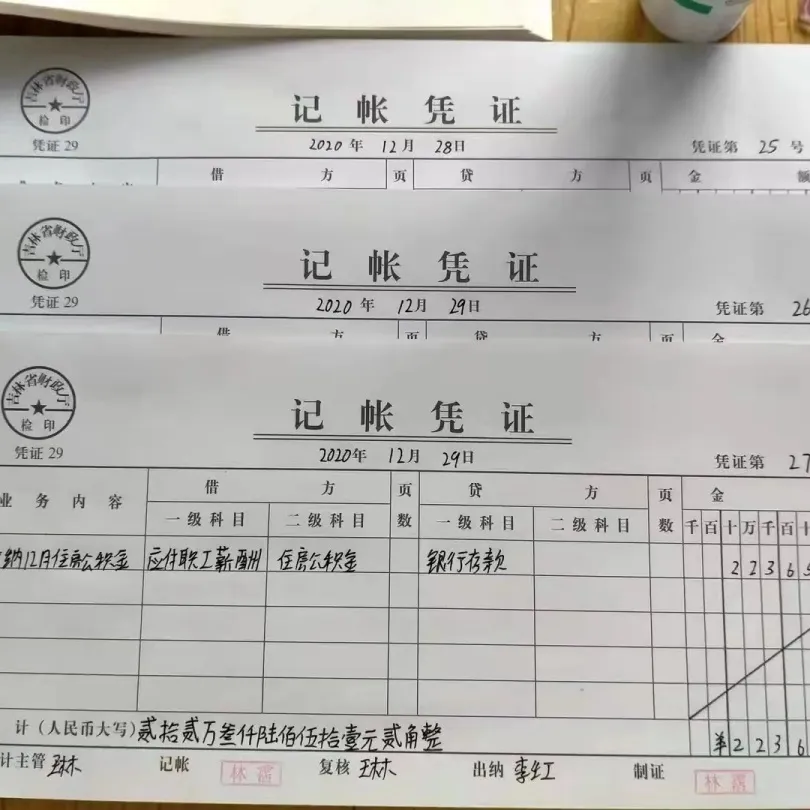 吉林省财政厅
检印
凭证 29
记帐凭证
2020 年 12 月 28 日
凭证第 25 号
借方 页 贷方 页 金额
吉林省财政厅
检印
凭证 29
记帐凭证
2020 年 12 月 29 日
凭证第 26
借方 页 贷方 页 金
吉林省财政厅
检印
凭证 29
记帐凭证
2020 年 12 月 29 日
凭证第 27
业务内容 借方 页数 贷方 页数 金
一级科目 二级科目 一级科目 二级科目 千百十万千百十
纳12月住房公积金 应付职工薪酬 住房公积金 银行存款 22365
计(人民币大写) 贰拾贰万叁仟陆佰伍拾壹元贰角整 ¥2236
计主管 记帐 林 复核 出纳 李红 制证 林